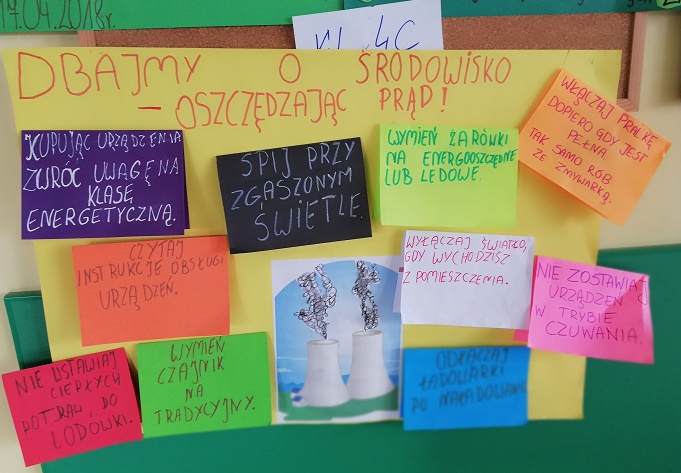 17.04.2018r.
KL. 4C
DBAJMY O ŚRODOWISKO
- OSZCZĘDZAJĄC PRĄD!
KUPUJĄC URZĄDZENIA
ZWRÓĆ UWAGĘ NA
KLASĘ
ENERGETYCZNĄ.
ŚPIJ PRZY
ZGASZONYM
ŚWIETLE.
WYMIEŃ ŻARÓWKI
NA ENERGOOSZCZĘDNE
LUB LEDOWE.
WŁĄCZAJ PRALKĘ
DOPIERO GDY JEST
PEŁNA
TAK SAMO RÓB
ZE ZMYWARKĄ.
CZYTAJ
INSTRUKCJE OBSŁUGI
URZĄDZEŃ.
WYŁĄCZAJ ŚWIATŁO,
GDY WYCHODZISZ
Z POMIESZCZENIA.
NIE ZOSTAWIAJ
URZĄDZEŃ
W TRYBIE
CZUWANIA.
NIE WSTAWIAJ
CIEPŁYCH
POTRAW DO
LODÓWKI.
WYMIEŃ
CZAJNIK
NA
TRADYCYJNY.
ODŁĄCZAJ
ŁADOWARKI
PO NAŁADOWANIU